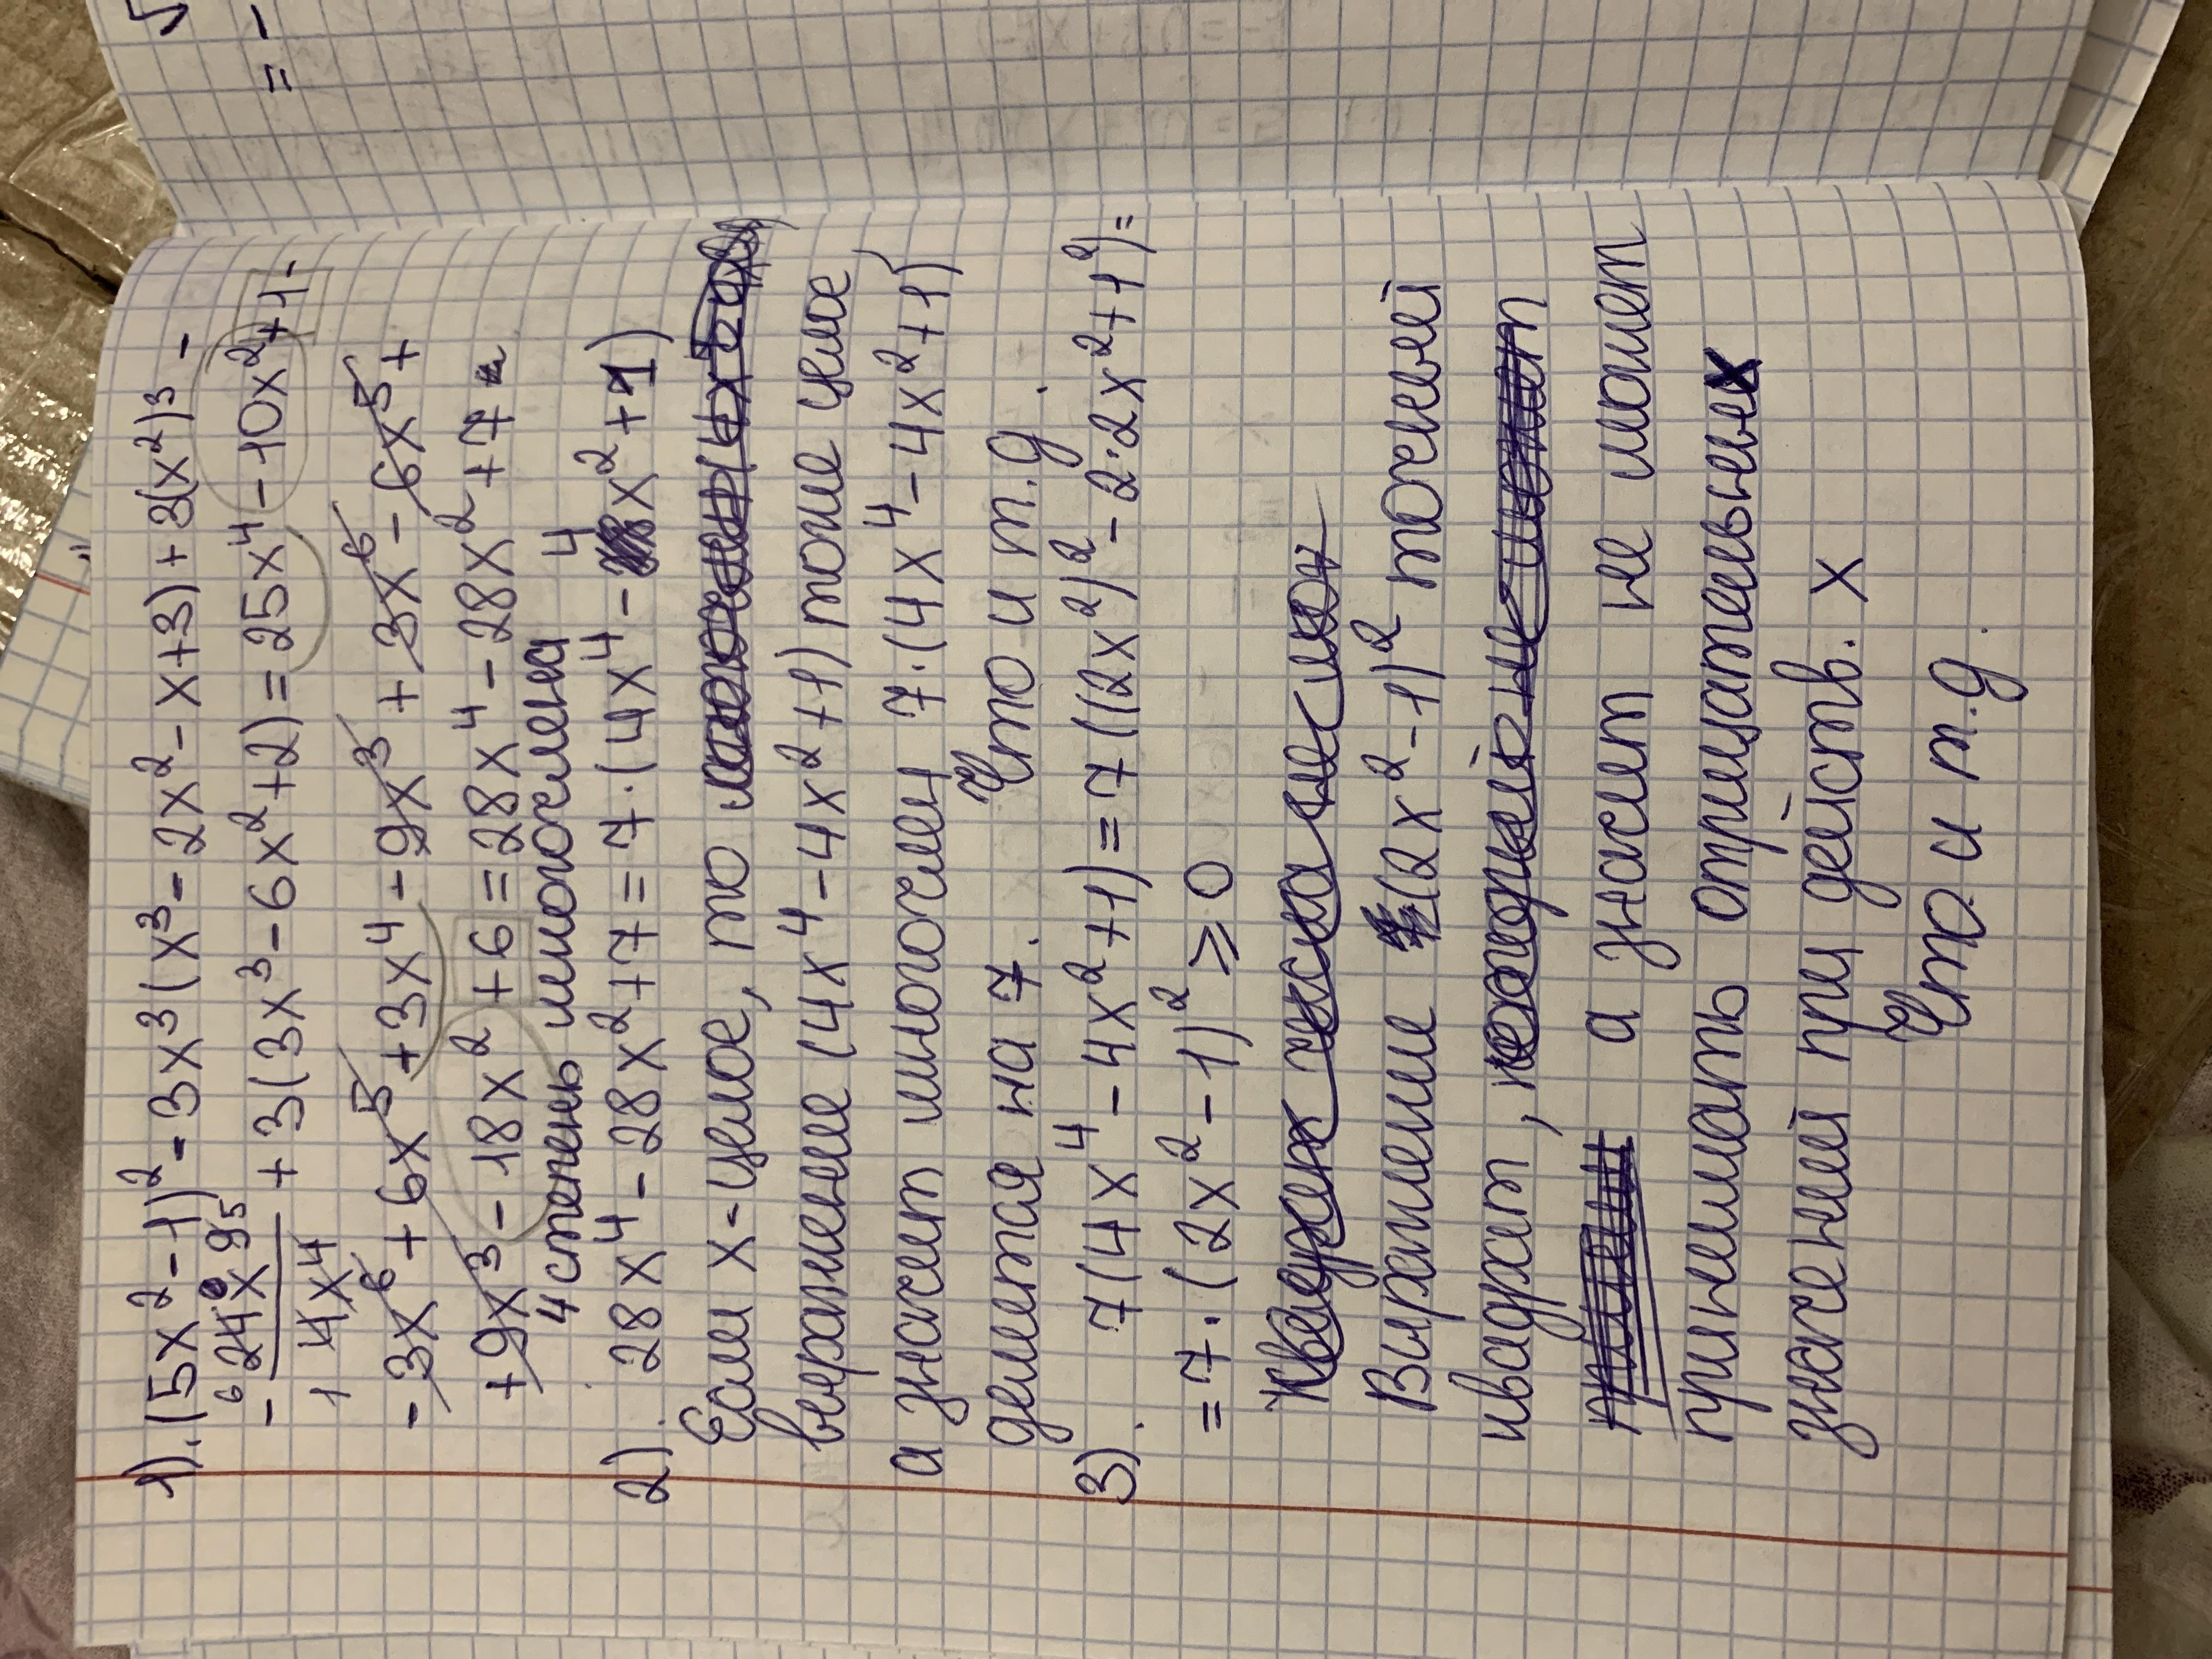 1). (5x²-1)² - 3x³(x³-2x²-x+3) + 3(x²)³ -
- 24x⁵ + 3(3x³-6x²+2) = 25x⁴-10x²+1-
14x⁴
-3x⁶+6x⁵+3x⁴-9x³+3x⁶-6x⁵+
+9x³-18x²+6=28x⁴-28x²+7
4 степень многочлена 4
2). 28x⁴-28x²+7=7·(4x⁴-4x²+1)
Если x-целое, то
выражение (4x⁴-4x²+1) тоже целое
а значит многочлен 7·(4x⁴-4x²+1)
делится на 7. Что и т.д.
3). 7(4x⁴-4x²+1)=7((2x²)²-2·2x²+1²)=
=7·(2x²-1)² ≥ 0
Выражение (2x²-1)² точный
квадрат, а значит не может
принимать отрицательных
значений при действ. x
Что и т.д.
5
= -